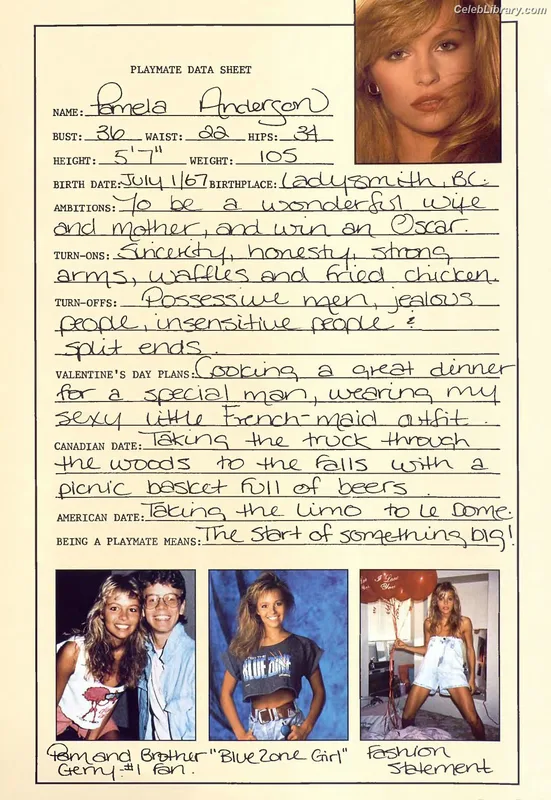 CelebLibrary.com
PLAYMATE DATA SHEET
NAME: Pamela Anderson
BUST: 36 WAIST: 22 HIPS: 34
HEIGHT: 5'7" WEIGHT: 105
BIRTH DATE: July 1/67 BIRTHPLACE: Ladysmith, BC.
AMBITIONS: To be a wonderful wife
and mother, and win an Oscar.
TURN-ONS: Sincerity, honesty, strong
arms, waffles and fried chicken.
TURN-OFFS: Possessive men, jealous
people, insensitive people &
split ends.
VALENTINE'S DAY PLANS: Cooking a great dinner
for a special man, wearing my
sexy little French-maid outfit.
CANADIAN DATE: Taking the truck through
the woods to the falls with a
picnic basket full of beers.
AMERICAN DATE: Taking the limo to Le Dome.
BEING A PLAYMATE MEANS: The start of something big!
I Love
You
BLUE ZONE
Pam and Brother "Blue Zone Girl" Fashion
Gerry - #1 Fan. Statement